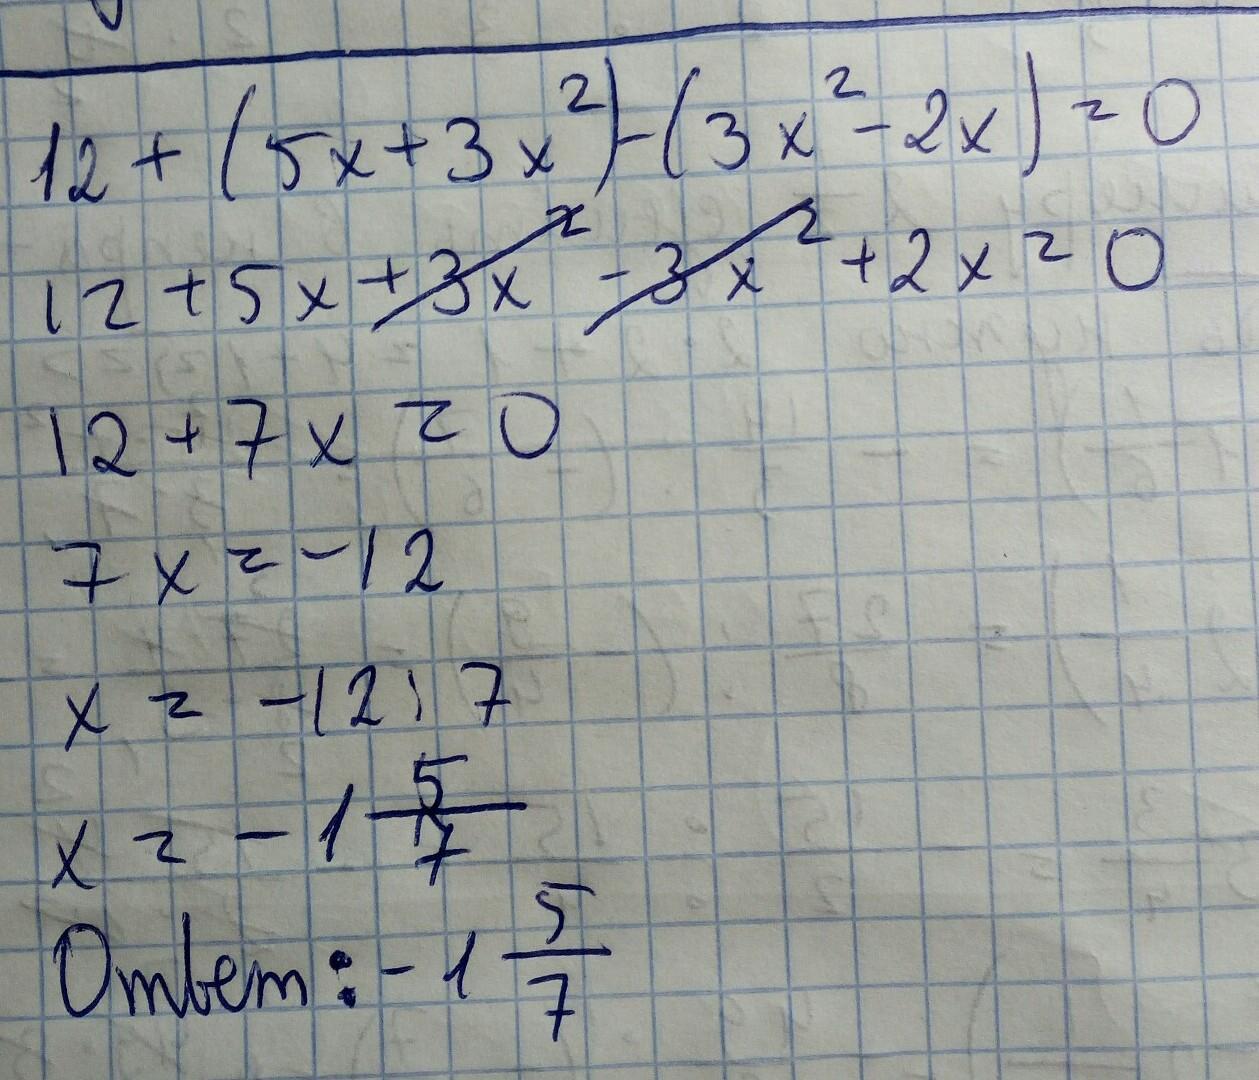 12 + (5x + 3x²) - (3x² - 2x) = 0
12 + 5x + 3x² - 3x² + 2x = 0
12 + 7x = 0
7x = -12
x = -12 : 7
x = -1 5/7
Ответ: -1 5/7